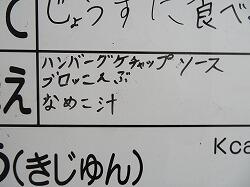 て
じょうずに食べ
ハンバーグケチャップソース
ブロッこえぶ
なめこ汁
え
う(きじゅん)
Kca